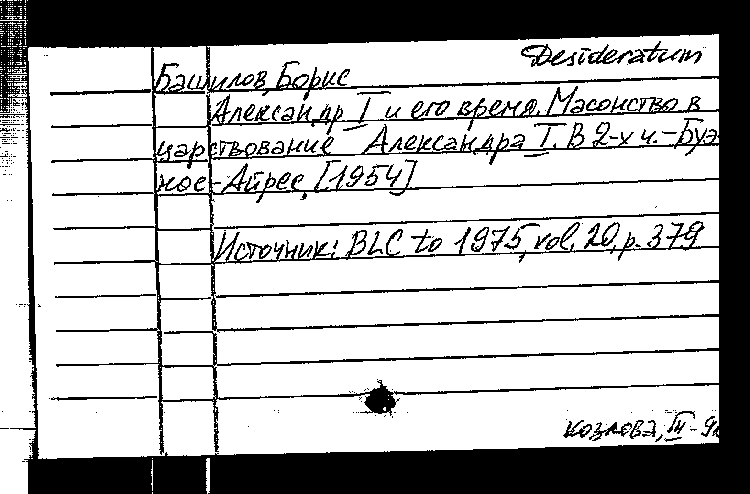 Desideratum
Башилов, Борис
Александр I и его время. Масонство в
царствование Александра I. В 2-х ч. - Буэ-
нос-Айрес, [1954]
Источник: BLC to 1975, vol. 20, p. 379
Козлова, III-